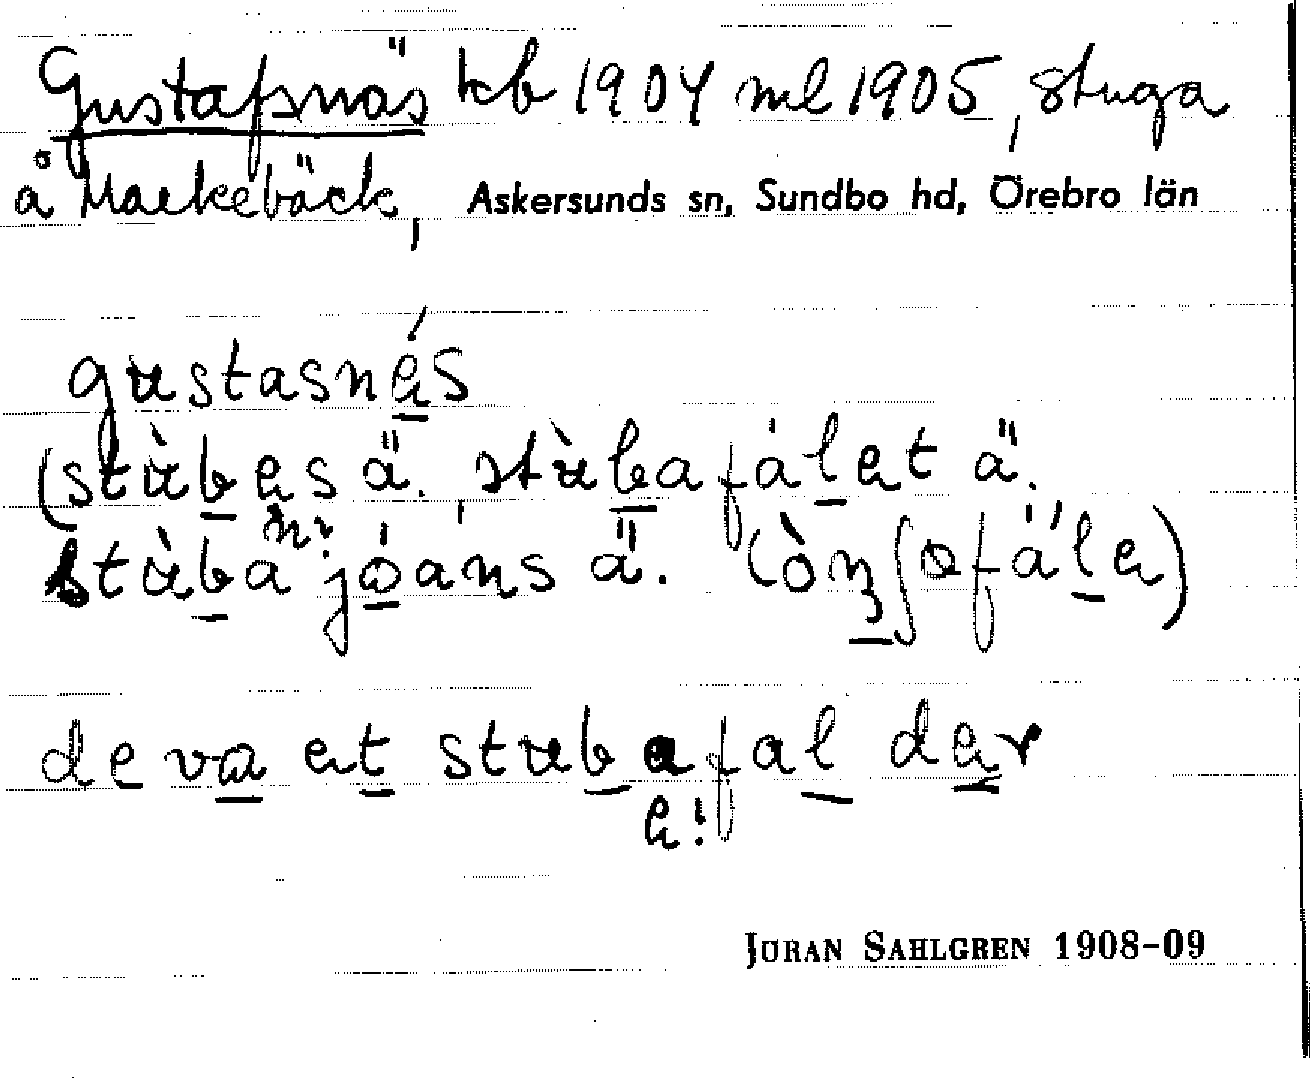 Gustafsnäs kb 1904 ml 1905, stuga
å Markebäck, Askersunds sn, Sundbo hd, Örebro län
gustasnǽs
(stùbæs ä., stùbafálæt ä.
stùba n? jóans ä. (òn̦ʃofálæ)
de va æt stubafal dær
æ!
JÖRAN SAHLGREN 1908-09